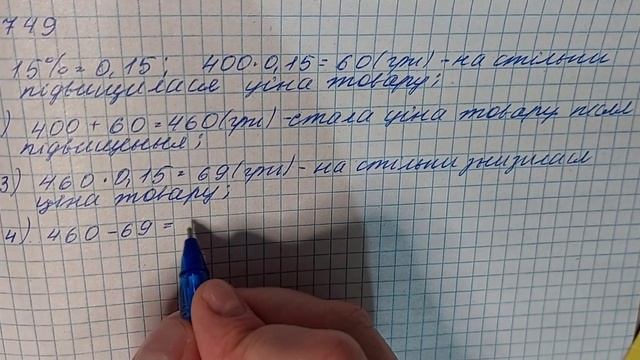 749
15% = 0,15; 400·0,15 = 60(грн) - на стільки
підвищилася ціна товару;
) 400 + 60 = 460(грн) - стала ціна товару після
підвищення;
3) 460·0,15 = 69(грн) - на стільки знизилася
ціна товару;
4). 460 - 69 =